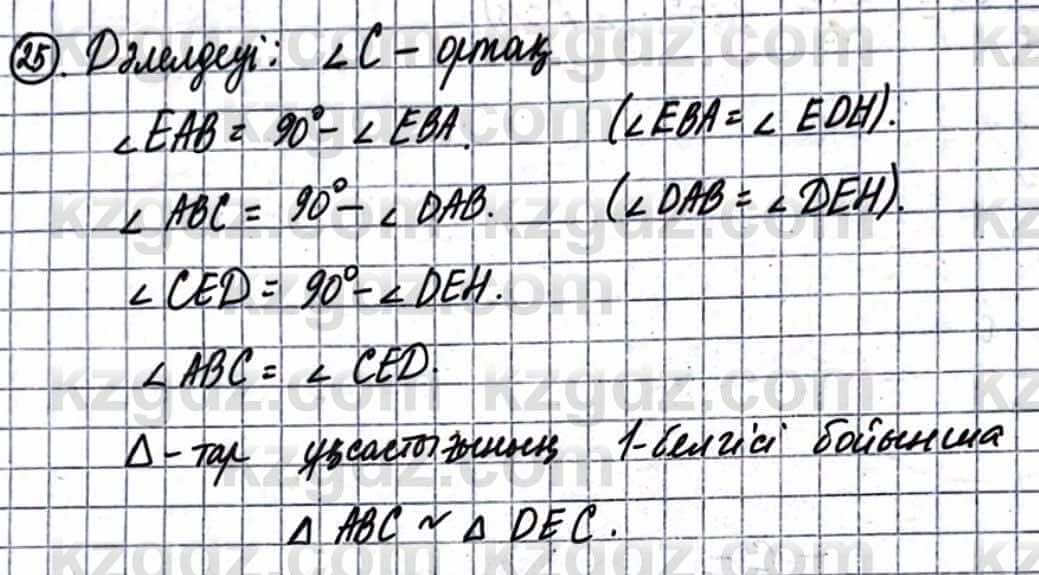 25. Дәлелдеуі: ∠C – ортақ
∠EAB = 90° – ∠EBA. (∠EBA = ∠EDH).
∠ABC = 90° – ∠DAB. (∠DAB = ∠DEH).
∠CED = 90° – ∠DEH.
∠ABC = ∠CED.
Δ – тар ұқсастығының 1-белгісі бойынша
Δ ABC ~ Δ DEC.
kzgdz.com